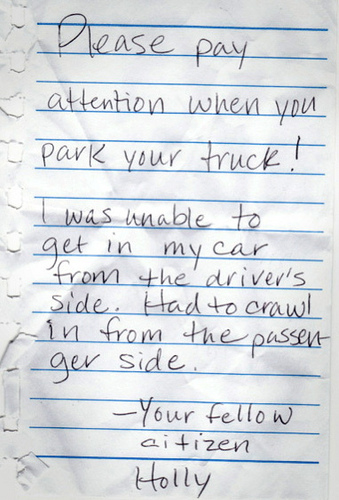 Please pay
attention when you
park your truck!
I was unable to
get in my car
from the driver's
side. Had to crawl
in from the passen-
ger side.
—Your fellow
citizen
Holly